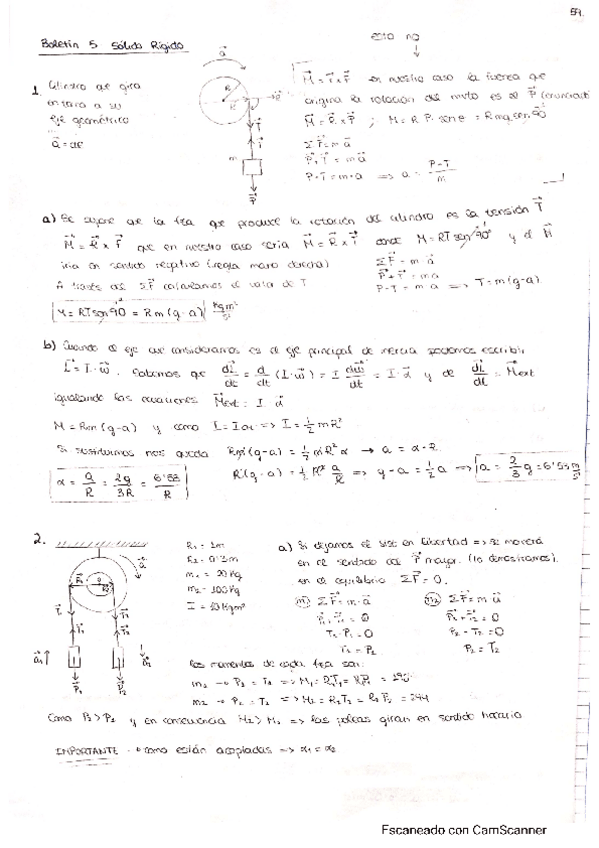 59.
Boletín 5 Sólido Rígido
esto no
1. Cilindro que gira
en torno a su
eje geométrico
M = r x F en nuestro caso la fuerza que
origina la rotación del mvto es el P (enunciado)
M = R x P ; M = R P. sen θ = R mg sen 90
ΣF = m a
P + T = m a
P - T = m · a => a = P-T / m
a) Se supone que la fza que produce la rotación del cilindro es la tensión T
M = R x F que en nuestro caso sería M = R x T donde M = RT sen 90° y el M
iría en sentido negativo (regla mano derecha)
ΣF = m · a
P + T = m a
P - T = m a => T = m(g-a)
A través de ΣF calculamos el valor de T
M = RT sen 90 = Rm (g-a)
b) Cuando el eje que consideramos es el eje principal de inercia podemos escribir
L = I · ω . Sabemos que dL/dt = d/dt (I · ω) = I dω/dt = I · α y de dL/dt = Mext
igualando las ecuaciones Mext = I α
M = Rm (g-a) y como I = => I = 1/2 mR²
Si sustituimos nos queda Rm (g-a) = 1/2 mR² α → a = α · R
R (g-a) = 1/2 R² a/R => g-a = 1/2 a => a = 2/3 g = 6'53 m/s²
α = a/R = 2g/3R = 6'53/R
2.
R1 = 1m
R2 = 0'3m
m1 = 20 Kg
m2 = 100 Kg
a) Si dejamos el sist en libertad => se moverá
en el sentido del P mayor. (lo demostramos).
en el equilibrio ΣF = 0.
m1 ΣF = m · a
m2 ΣF = m · a
P1 + T1 = 0
P2 + T2 = 0
T1 - P1 = 0
P2 - T2 = 0
T1 = P1
P2 = T2
los momentos de cada fza son:
m2 → P2 = T2 => M2 = R2T2 = R2P2 = 294
y en consecuencia M2 > M1 => las poleas giran en sentido horario
IMPORTANTE · como están acopladas => α1 = α2
Escaneado con CamScanner